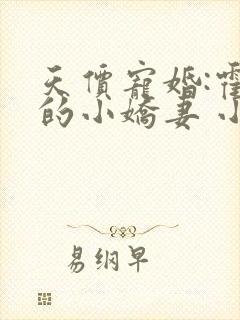 天價寵婚:霍
的小嬌妻 小
易纲早